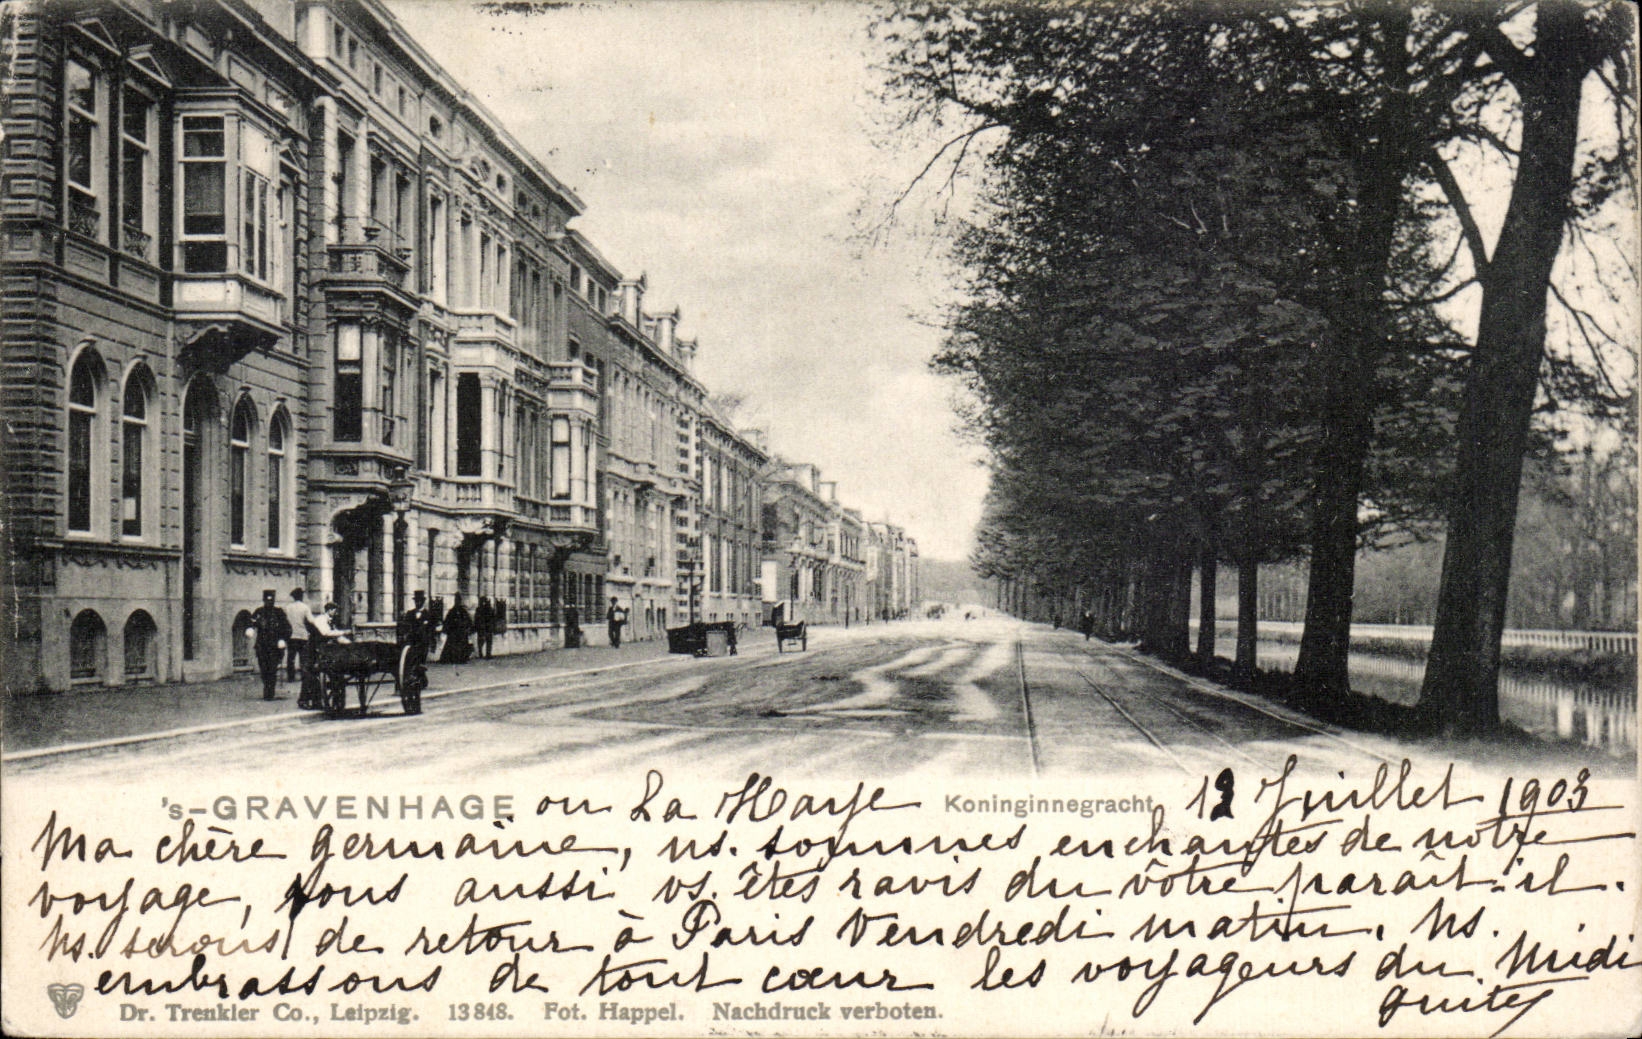 's-GRAVENHAGE ou La Haye Koninginnegracht 12 Juillet 1903
Ma chère Germaine, ns. sommes enchantés de notre
voyage, vous aussi vs. êtes ravis du vôtre paraît-il.
Ns. serons de retour à Paris Vendredi matin. Ns.
embrassons de tout cœur les voyageurs du Midi
Dr. Trenkler Co., Leipzig. 13848. Fot. Happel. Nachdruck verboten.